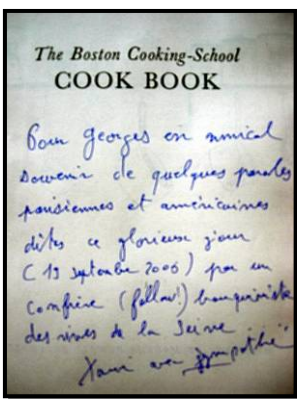 The Boston Cooking-School
COOK BOOK
Pour Georges en amical
souvenir de quelques paroles
parisiennes et américaines
dites ce glorieux jour
(19 septembre 2006) par un
confrère (fellow!) bouquiniste
des rives de la Seine
avec sympathie